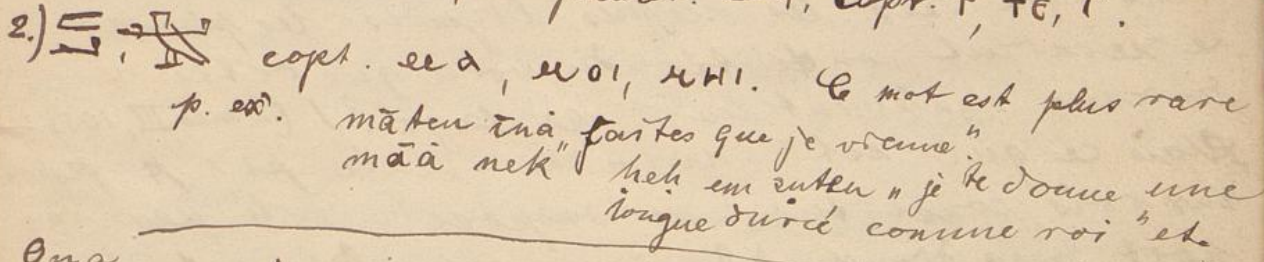 copt. ϯ, ϯⲉ,
2.) copt. ⲙⲁ, ⲙⲟⲓ, ⲙⲏⲓ. Ce mot est plus rare
p. ex. māten ina „faites que je vienne".
māà nek heh em suten „je te donne une
longue durée comme roi" et.